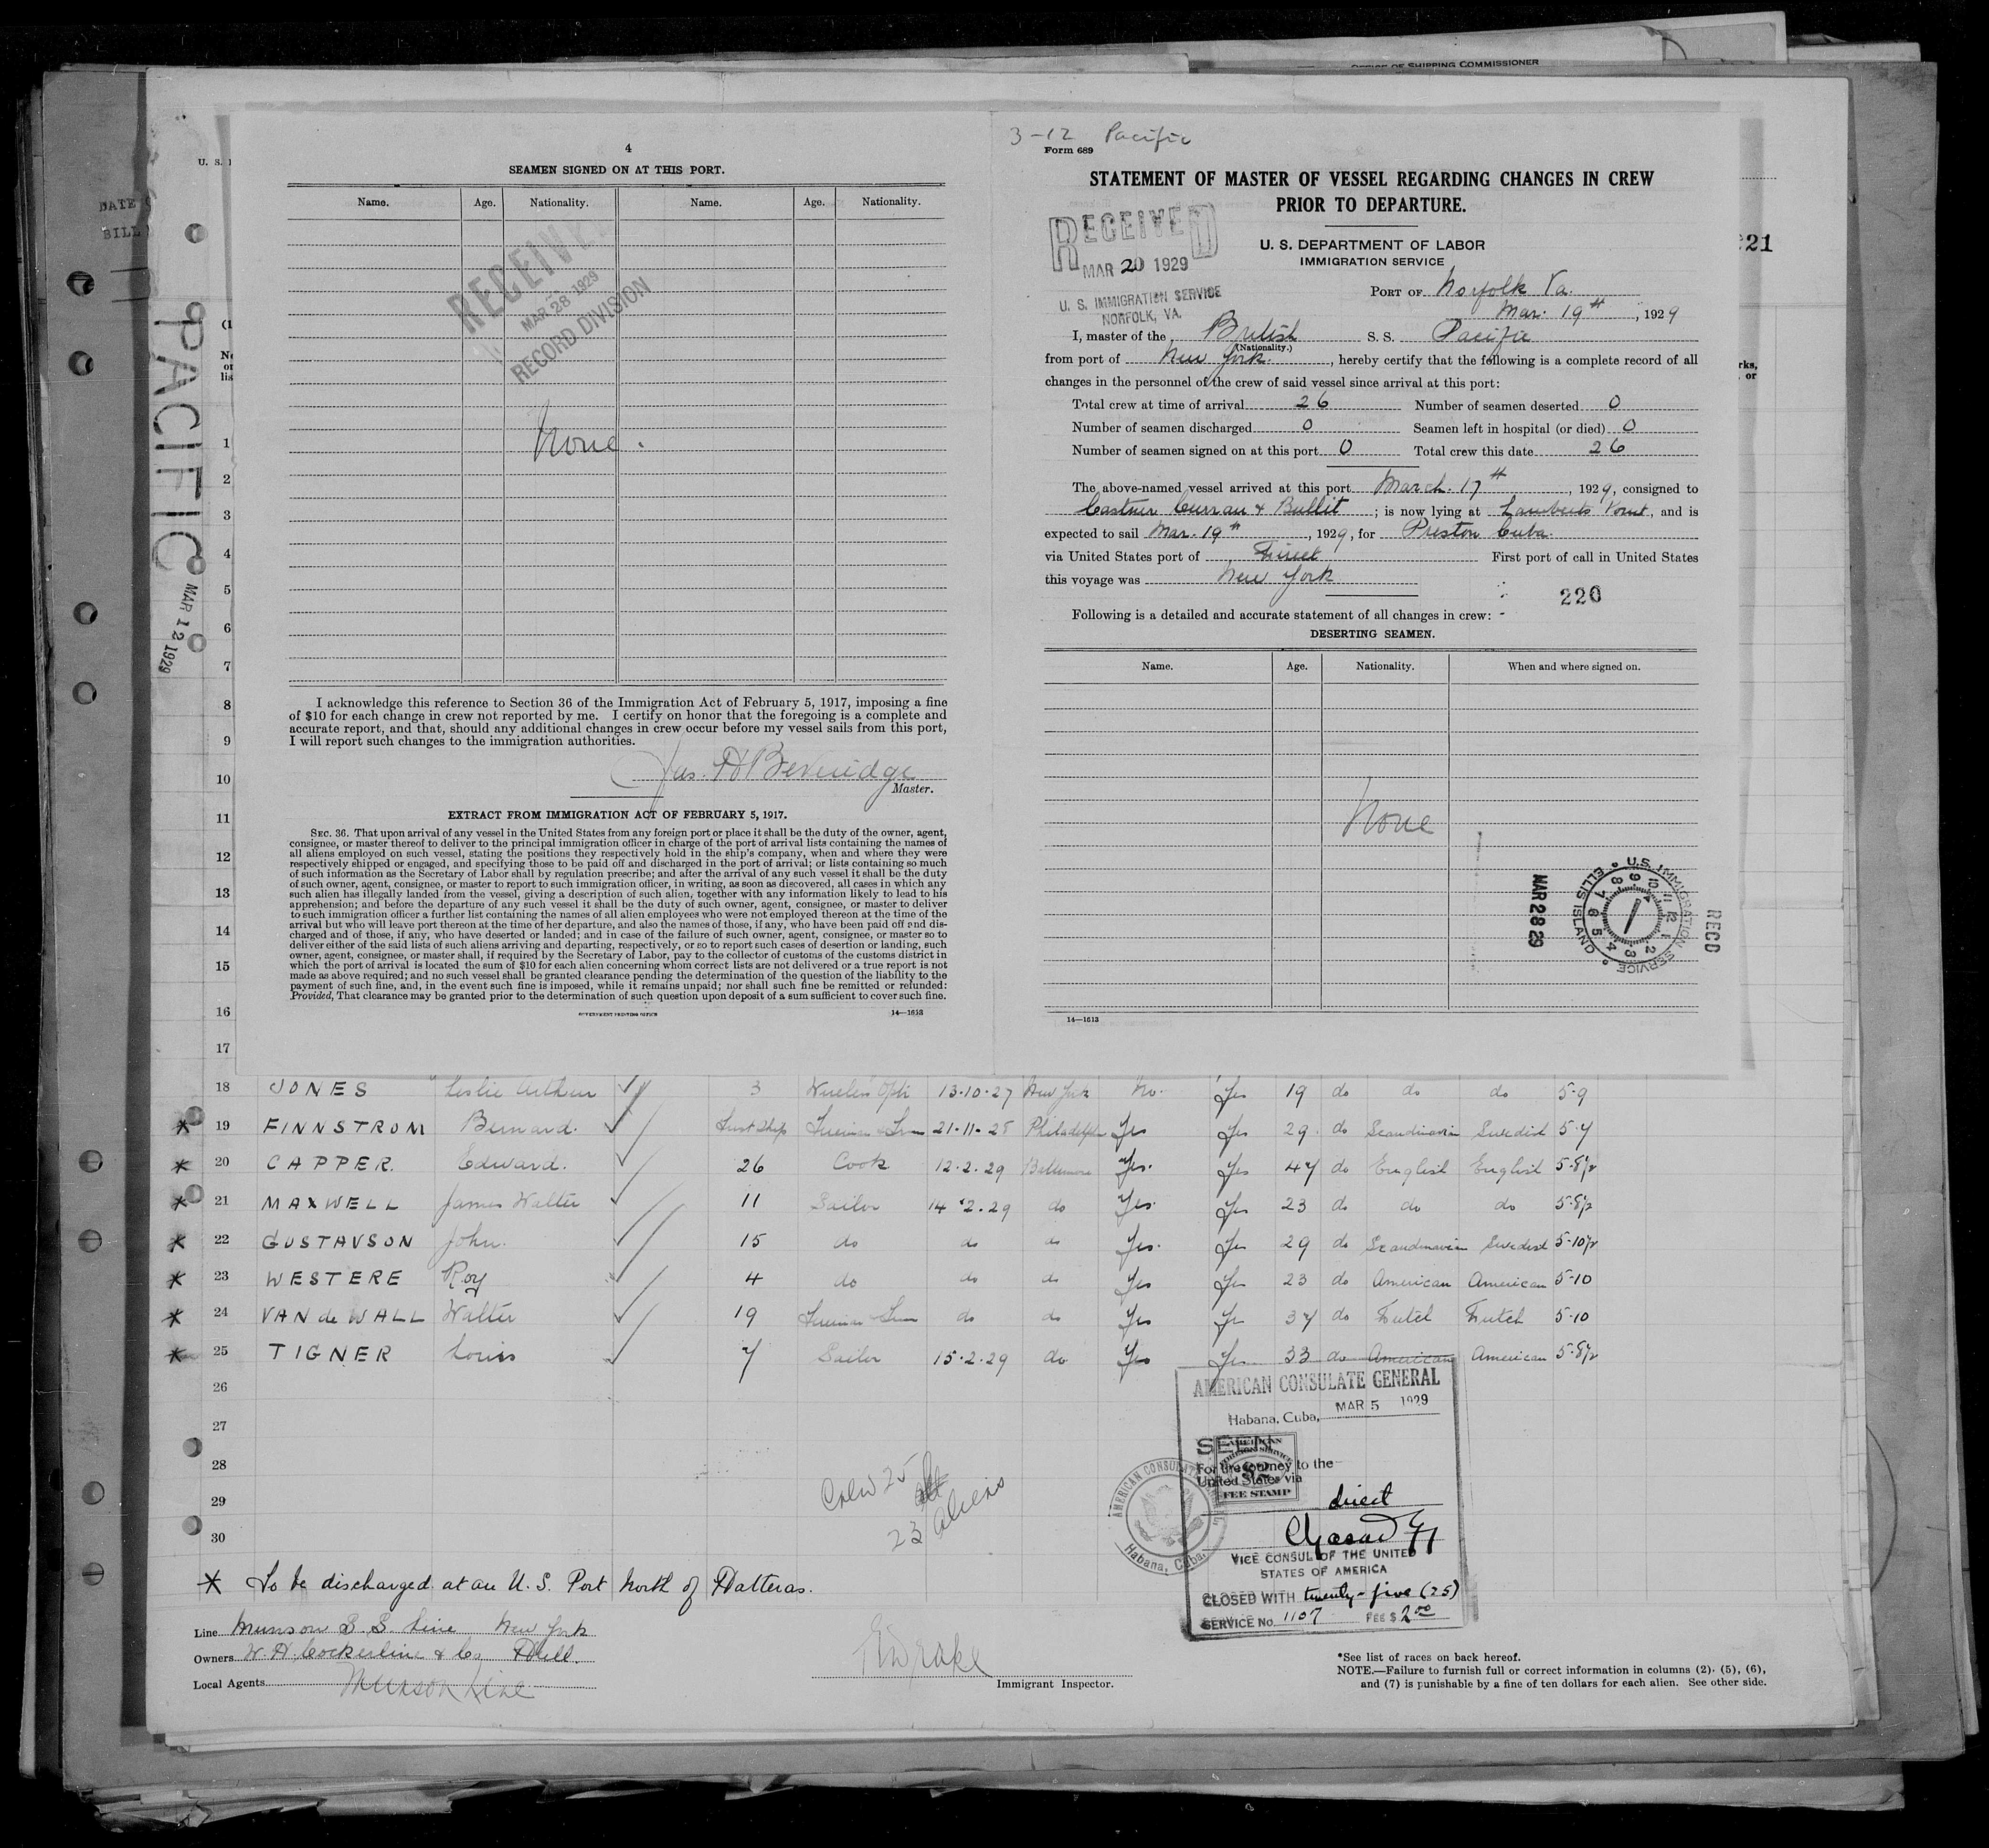 OFFICE OF SHIPPING COMMISSIONER
DATE
BILL
U. S.
21
PACIFIC
MAR 12 1929
4
SEAMEN SIGNED ON AT THIS PORT.
Name. Age. Nationality. Name. Age. Nationality.
RECEIVED
MAR 28 1929
RECORD DIVISION
None.
I acknowledge this reference to Section 36 of the Immigration Act of February 5, 1917, imposing a fine
of $10 for each change in crew not reported by me. I certify on honor that the foregoing is a complete and
accurate report, and that, should any additional changes in crew occur before my vessel sails from this port,
I will report such changes to the immigration authorities.
Jas. H Beveridge
Master.
EXTRACT FROM IMMIGRATION ACT OF FEBRUARY 5, 1917.
SEC. 36. That upon arrival of any vessel in the United States from any foreign port or place it shall be the duty of the owner, agent,
consignee, or master thereof to deliver to the principal immigration officer in charge of the port of arrival lists containing the names of
all aliens employed on such vessel, stating the positions they respectively hold in the ship's company, when and where they were
respectively shipped or engaged, and specifying those to be paid off and discharged in the port of arrival; or lists containing so much
of such information as the Secretary of Labor shall by regulation prescribe; and after the arrival of any such vessel it shall be the duty
of such owner, agent, consignee, or master to report to such immigration officer, in writing, as soon as discovered, all cases in which any
such alien has illegally landed from the vessel, giving a description of such alien, together with any information likely to lead to his
apprehension; and before the departure of any such vessel it shall be the duty of such owner, agent, consignee, or master to deliver
to such immigration officer a further list containing the names of all alien employees who were not employed thereon at the time of the
arrival but who will leave port thereon at the time of her departure, and also the names of those, if any, who have been paid off and dis-
charged and of those, if any, who have deserted or landed; and in case of the failure of such owner, agent, consignee, or master so to
deliver either of the said lists of such aliens arriving and departing, respectively, or so to report such cases of desertion or landing, such
owner, agent, consignee, or master shall, if required by the Secretary of Labor, pay to the collector of customs of the customs district in
which the port of arrival is located the sum of $10 for each alien concerning whom correct lists are not delivered or a true report is not
made as above required; and no such vessel shall be granted clearance pending the determination of the question of the liability to the
payment of such fine, and, in the event such fine is imposed, while it remains unpaid; nor shall such fine be remitted or refunded:
Provided, That clearance may be granted prior to the determination of such question upon deposit of a sum sufficient to cover such fine.
GOVERNMENT PRINTING OFFICE 14—1613
3-12 Pacific
Form 689
STATEMENT OF MASTER OF VESSEL REGARDING CHANGES IN CREW
PRIOR TO DEPARTURE.
RECEIVED
MAR 20 1929
U. S. IMMIGRATION SERVICE
NORFOLK, VA.
U. S. DEPARTMENT OF LABOR
IMMIGRATION SERVICE
PORT OF Norfolk Va.
Mar. 19th, 1929
I, master of the British S. S. Pacific
(Nationality.)
from port of New York, hereby certify that the following is a complete record of all
changes in the personnel of the crew of said vessel since arrival at this port:
Total crew at time of arrival 26 Number of seamen deserted 0
Number of seamen discharged 0 Seamen left in hospital (or died) 0
Number of seamen signed on at this port 0 Total crew this date 26
The above-named vessel arrived at this port March. 17th, 1929, consigned to
Castner Curran & Bullit; is now lying at Lamberts Point, and is
expected to sail Mar. 19th, 1929, for Preston Cuba.
via United States port of Direct First port of call in United States
this voyage was New York
220
Following is a detailed and accurate statement of all changes in crew:
DESERTING SEAMEN.
Name. Age. Nationality. When and where signed on.
None
MAR 28 29
U.S. IMMIGRATION SERVICE ELLIS ISLAND
RECD
14—1613
1
2
3
4
5
6
7
8
9
10
11
12
13
14
15
16
17
18 JONES Leslie Arthur 3 Wireless Optr 13-10-27 New York No. Yes 19 do do do 5-9
* 19 FINNSTROM Bernard. First Ship Fireman 21-11-28 Philadelphia Yes Yes 29 do Scandinavian Swedish 5-7
* 20 CAPPER. Edward. 26 Cook 12.2.29 Baltimore Yes. Yes 47 do English English 5-8½
* 21 MAXWELL James Walter 11 Sailor 14.2.29 do Yes. Yes 23 do do do 5-8½
* 22 GUSTAVSON John. 15 do do do Yes. Yes 29 do Scandinavian Swedish 5-10½
* 23 WESTERE Roy 4 do do do Yes Yes 23 do American American 5-10
* 24 VAN de WALL Walter 19 Fireman do do Yes Yes 37 do Dutch Dutch 5-10
* 25 TIGNER Louis 7 Sailor 15.2.29 do Yes Yes 33 do American American 5-8½
26
27
28
29
30
Crew 25
23 aliens
AMERICAN CONSULATE GENERAL
Habana, Cuba, MAR 5 1929
SEEN
For the journey to the
United States via
FEE STAMP
direct
VICE CONSUL OF THE UNITED
STATES OF AMERICA
CLOSED WITH twenty-five (25)
SERVICE No. 1107 FEE $ 2.00
AMERICAN CONSULATE GENERAL Habana, Cuba.
* To be discharged at an U. S. Port North of Hatteras.
Line Munson S. S. Line New York
Owners W. H. Cockerline & Co Hull.
Local Agents Munson Line
Immigrant Inspector.
*See list of races on back hereof.
NOTE.—Failure to furnish full or correct information in columns (2), (5), (6),
and (7) is punishable by a fine of ten dollars for each alien. See other side.